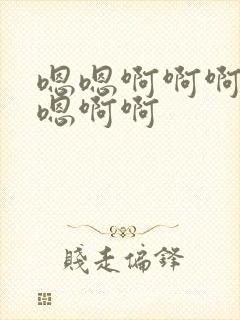 嗯嗯啊啊啊
嗯啊啊
贱走偏锋